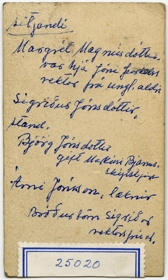 Sitjandi
Margrét Magnúsdóttir,
var hjá Jóni
rektor frá unglaldri
Sigríður Jónsdóttir,
stand.
Björg Jónsdóttir
gift Markúsi Bjarna.
skólastjóra
Árni Jónsson, læknir
Bróðurbörn Sigríðar
rektorsfrúar.
25020